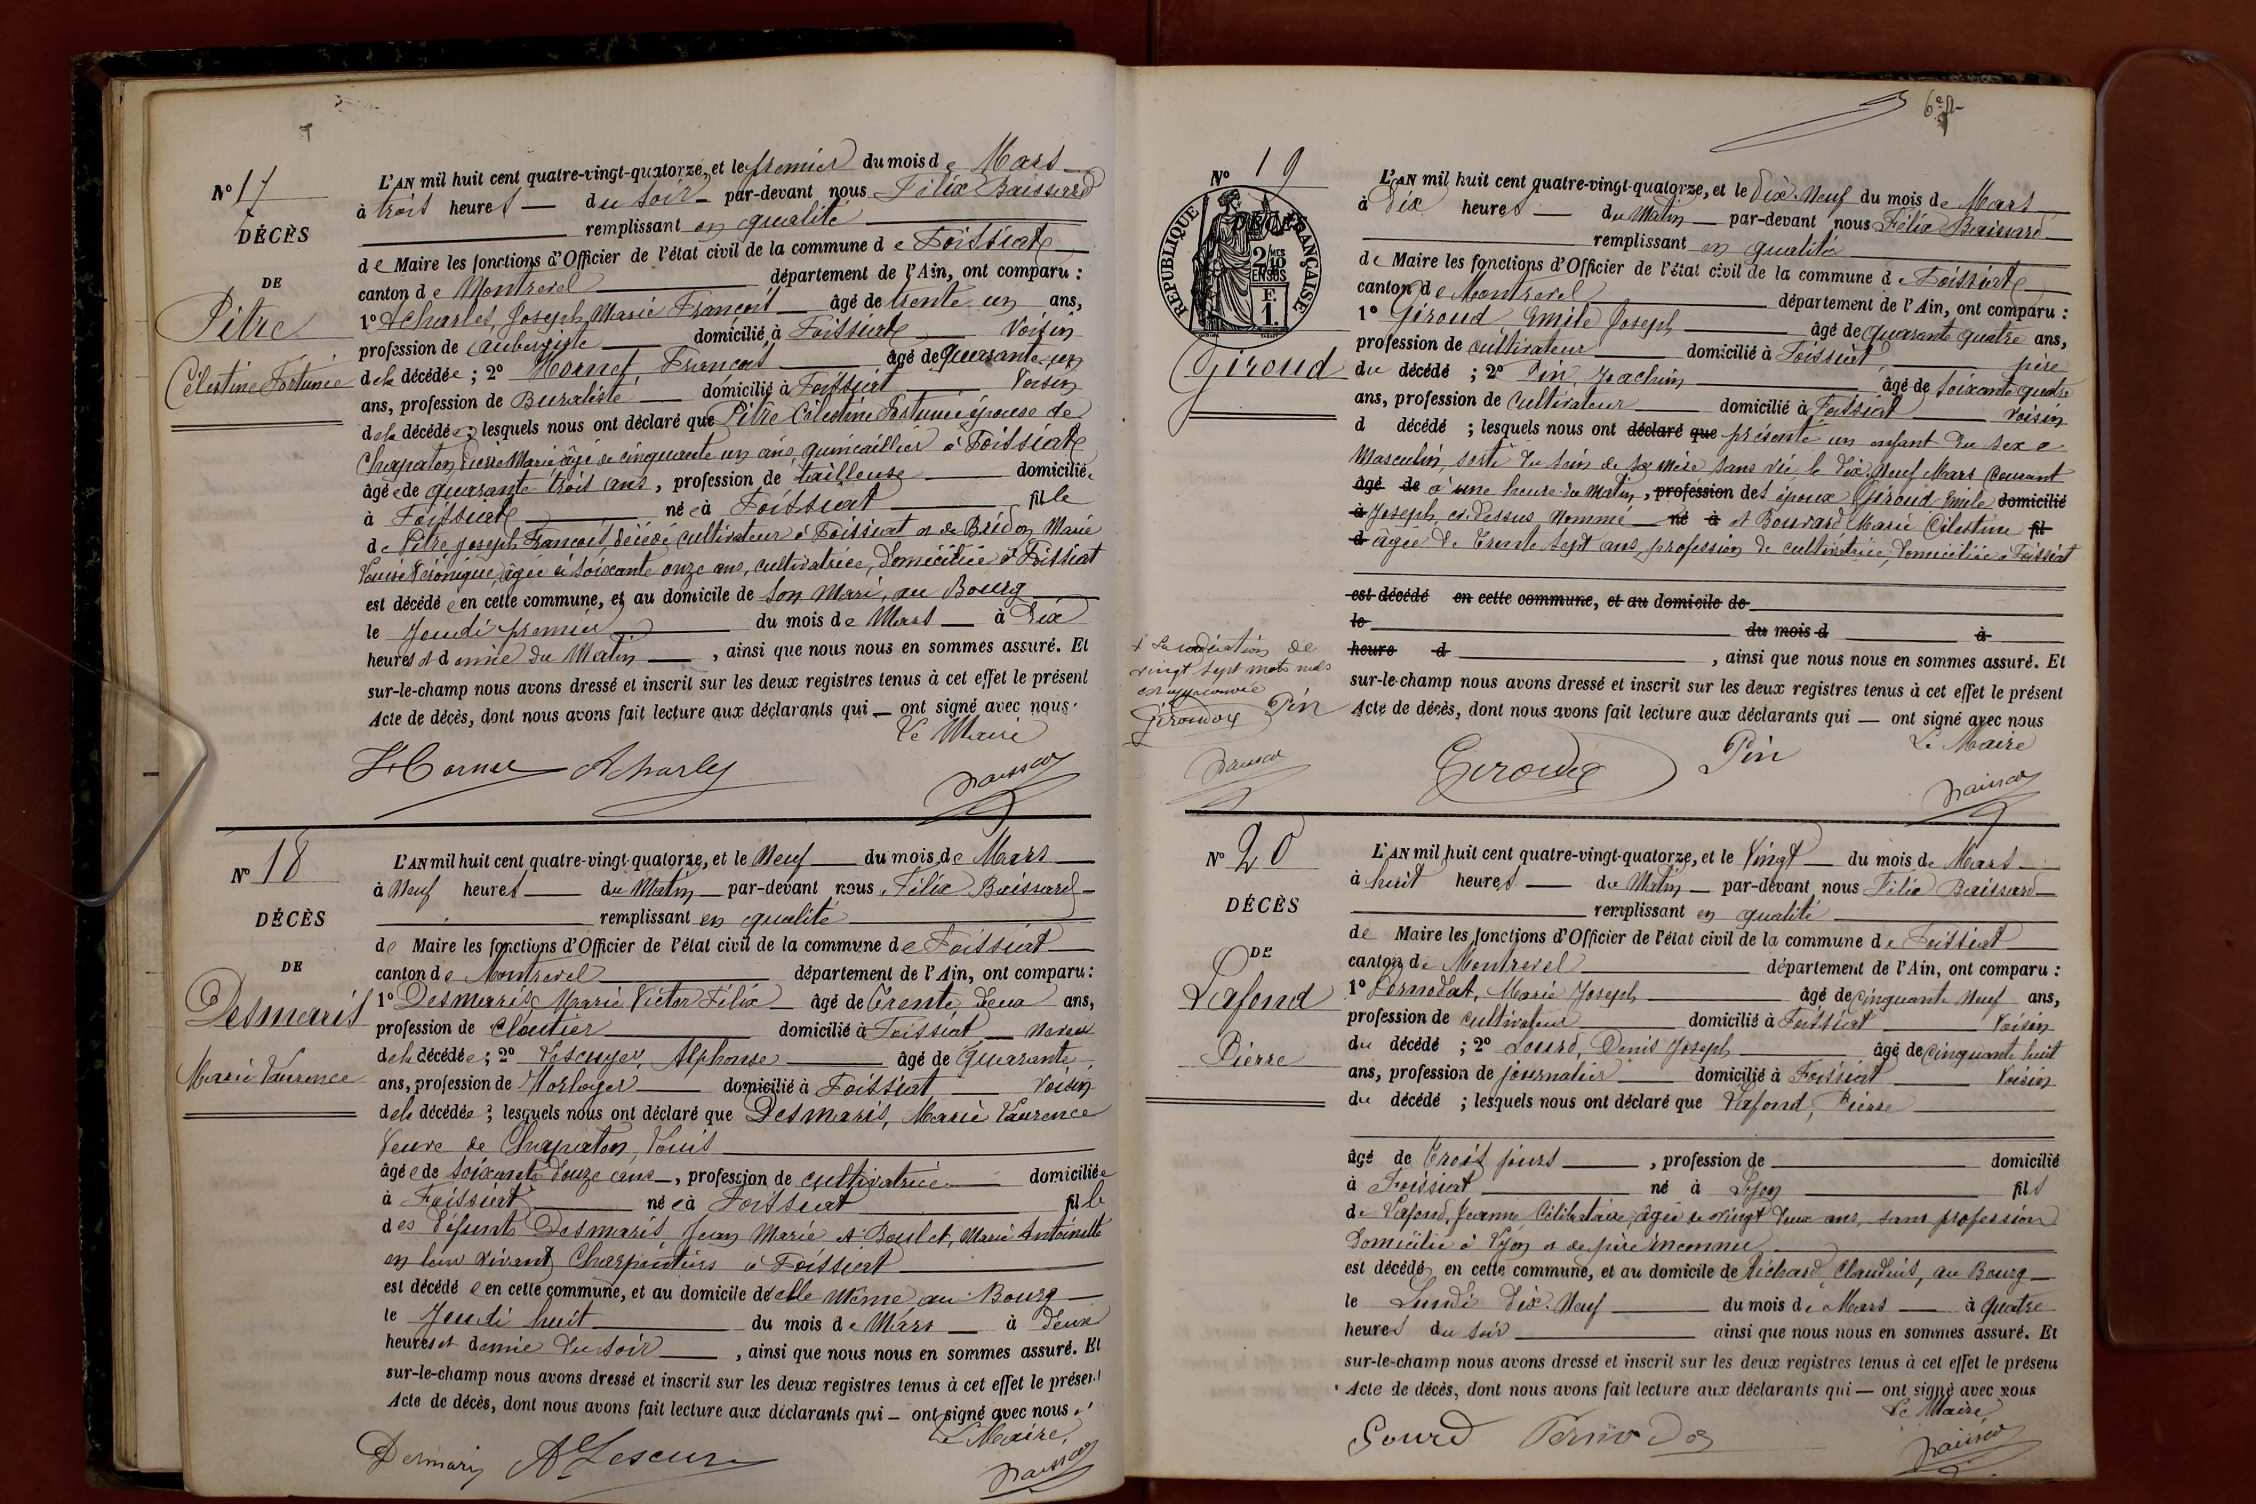 N° 17
DÉCÈS
DE
Pitre
Célestine Fortunée
L'AN mil huit cent quatre-vingt-quatorze, et le premier du mois de Mars
à trois heures du soir par-devant nous Félix Baissard
remplissant en qualité
de Maire les fonctions d'Officier de l'état civil de la commune de Foissiat
canton de Montrevel département de l'Ain, ont comparu :
1° Acharles, Joseph Marie François âgé de trente un ans,
profession de aubergiste domicilié à Foissiat voisin
de la décédée ; 2° François âgé de quarante un
ans, profession de Buraliste domicilié à Foissiat voisin
de la décédée ; lesquels nous ont déclaré que Pitre Célestine Fortunée épouse de
Chapaton Pierre Marie âgé de cinquante un ans quincaillier à Foissiat
âgée de quarante trois ans, profession de tailleuse domiciliée
à Foissiat née à Foissiat fille
de Pitre Joseph François, décédé cultivateur à Foissiat et de Bridon Marie
Louise Véronique, âgée de soixante onze ans, cultivatrice, domiciliée à Foissiat
est décédée en cette commune, et au domicile de son mari, au Bourg
le Jeudi premier du mois de Mars à dix
heures et demie du Matin, ainsi que nous nous en sommes assuré. Et
sur-le-champ nous avons dressé et inscrit sur les deux registres tenus à cet effet le présent
Acte de décès, dont nous avons fait lecture aux déclarants qui — ont signé avec nous.
Le Maire
N° 18
DÉCÈS
DE
Desmaris
Marie Laurence
L'AN mil huit cent quatre-vingt-quatorze, et le Neuf du mois de Mars
à Neuf heures du Matin par-devant nous Félix Baissard
remplissant en qualité
de Maire les fonctions d'Officier de l'état civil de la commune de Foissiat
canton de Montrevel département de l'Ain, ont comparu :
1° Desmaris, Marie Victor Félix âgé de trente deux ans,
profession de cloutier domicilié à Foissiat neveu
de la décédée ; 2° Lescuyer, Alphonse âgé de quarante
ans, profession de Horloger domicilié à Foissiat voisin
de la décédée ; lesquels nous ont déclaré que Desmaris, Marie Laurence
Veuve de Chapaton, Louis
âgée de soixante douze ans, profession de cultivatrice domiciliée
à Foissiat née à Foissiat fille
des défunts Desmaris, Jean Marie et Boulet, Marie Antoinette
en leur vivant Charpentiers à Foissiat
est décédée en cette commune, et au domicile d'elle même, au Bourg
le Jeudi huit du mois de Mars à deux
heures et demie du soir, ainsi que nous nous en sommes assuré. Et
sur-le-champ nous avons dressé et inscrit sur les deux registres tenus à cet effet le présent
Acte de décès, dont nous avons fait lecture aux déclarants qui — ont signé avec nous
Le Maire,
Desmaris
6e
N° 19
RÉPUBLIQUE FRANÇAISE
DÉCÈS
2/10
EN SUS
F.
1.
Giroud
L'AN mil huit cent quatre-vingt-quatorze, et le Dix Neuf du mois de Mars
à Dix heures du Matin par-devant nous Félix Baissard
remplissant en qualité
de Maire les fonctions d'Officier de l'état civil de la commune de Foissiat
canton de Montrevel département de l'Ain, ont comparu :
1° Giroud Emile Joseph âgé de quarante quatre ans,
profession de cultivateur domicilié à Foissiat, père
du décédé ; 2° Pin, Joachim âgé de soixante quatre
ans, profession de cultivateur domicilié à Foissiat voisin
d décédé ; lesquels nous ont déclaré que présenté un enfant du sexe
Masculin, sorti du sein de sa Mère sans vie, le Dix Neuf Mars courant
âgé de à une heure du Matin, profession des époux Giroud Emile domicilié
à Joseph, ci-dessus Nommé né à et Bouvard Marie Célestine fil
d âgée de trente sept ans, profession de cultivatrice, domiciliée à Foissiat
est décédé en cette commune, et au domicile de
le du mois d à
heure d , ainsi que nous nous en sommes assuré. Et
sur-le-champ nous avons dressé et inscrit sur les deux registres tenus à cet effet le présent
Acte de décès, dont nous avons fait lecture aux déclarants qui — ont signé avec nous
Le Maire
vingt sept mots nuls
Pin
Pin
N° 20
DÉCÈS
DE
Lafond
Pierre
L'AN mil huit cent quatre-vingt-quatorze, et le Vingt du mois de Mars
à huit heures du Matin par-devant nous Félix Baissard
remplissant en qualité
de Maire les fonctions d'Officier de l'état civil de la commune de Foissiat
canton de Montrevel département de l'Ain, ont comparu :
1° Pernodat, Marie Joseph âgé de cinquante Neuf ans,
profession de cultivateur domicilié à Foissiat voisin
du décédé ; 2° Gourd, Denis Joseph âgé de cinquante huit
ans, profession de journalier domicilié à Foissiat voisin
du décédé ; lesquels nous ont déclaré que Lafond, Pierre
âgé de trois jours, profession de domicilié
à Foissiat né à Lyon fils
de Lafond, Jeanne Célibataire, âgée de vingt deux ans, sans profession
domiciliée à Lyon et de père inconnu
est décédé en cette commune, et au domicile de Richard Claudius, au Bourg
le Lundi Dix Neuf du mois de Mars à quatre
heures du soir ainsi que nous nous en sommes assuré. Et
sur-le-champ nous avons dressé et inscrit sur les deux registres tenus à cet effet le présent
Acte de décès, dont nous avons fait lecture aux déclarants qui — ont signé avec nous
Le Maire
Gourd